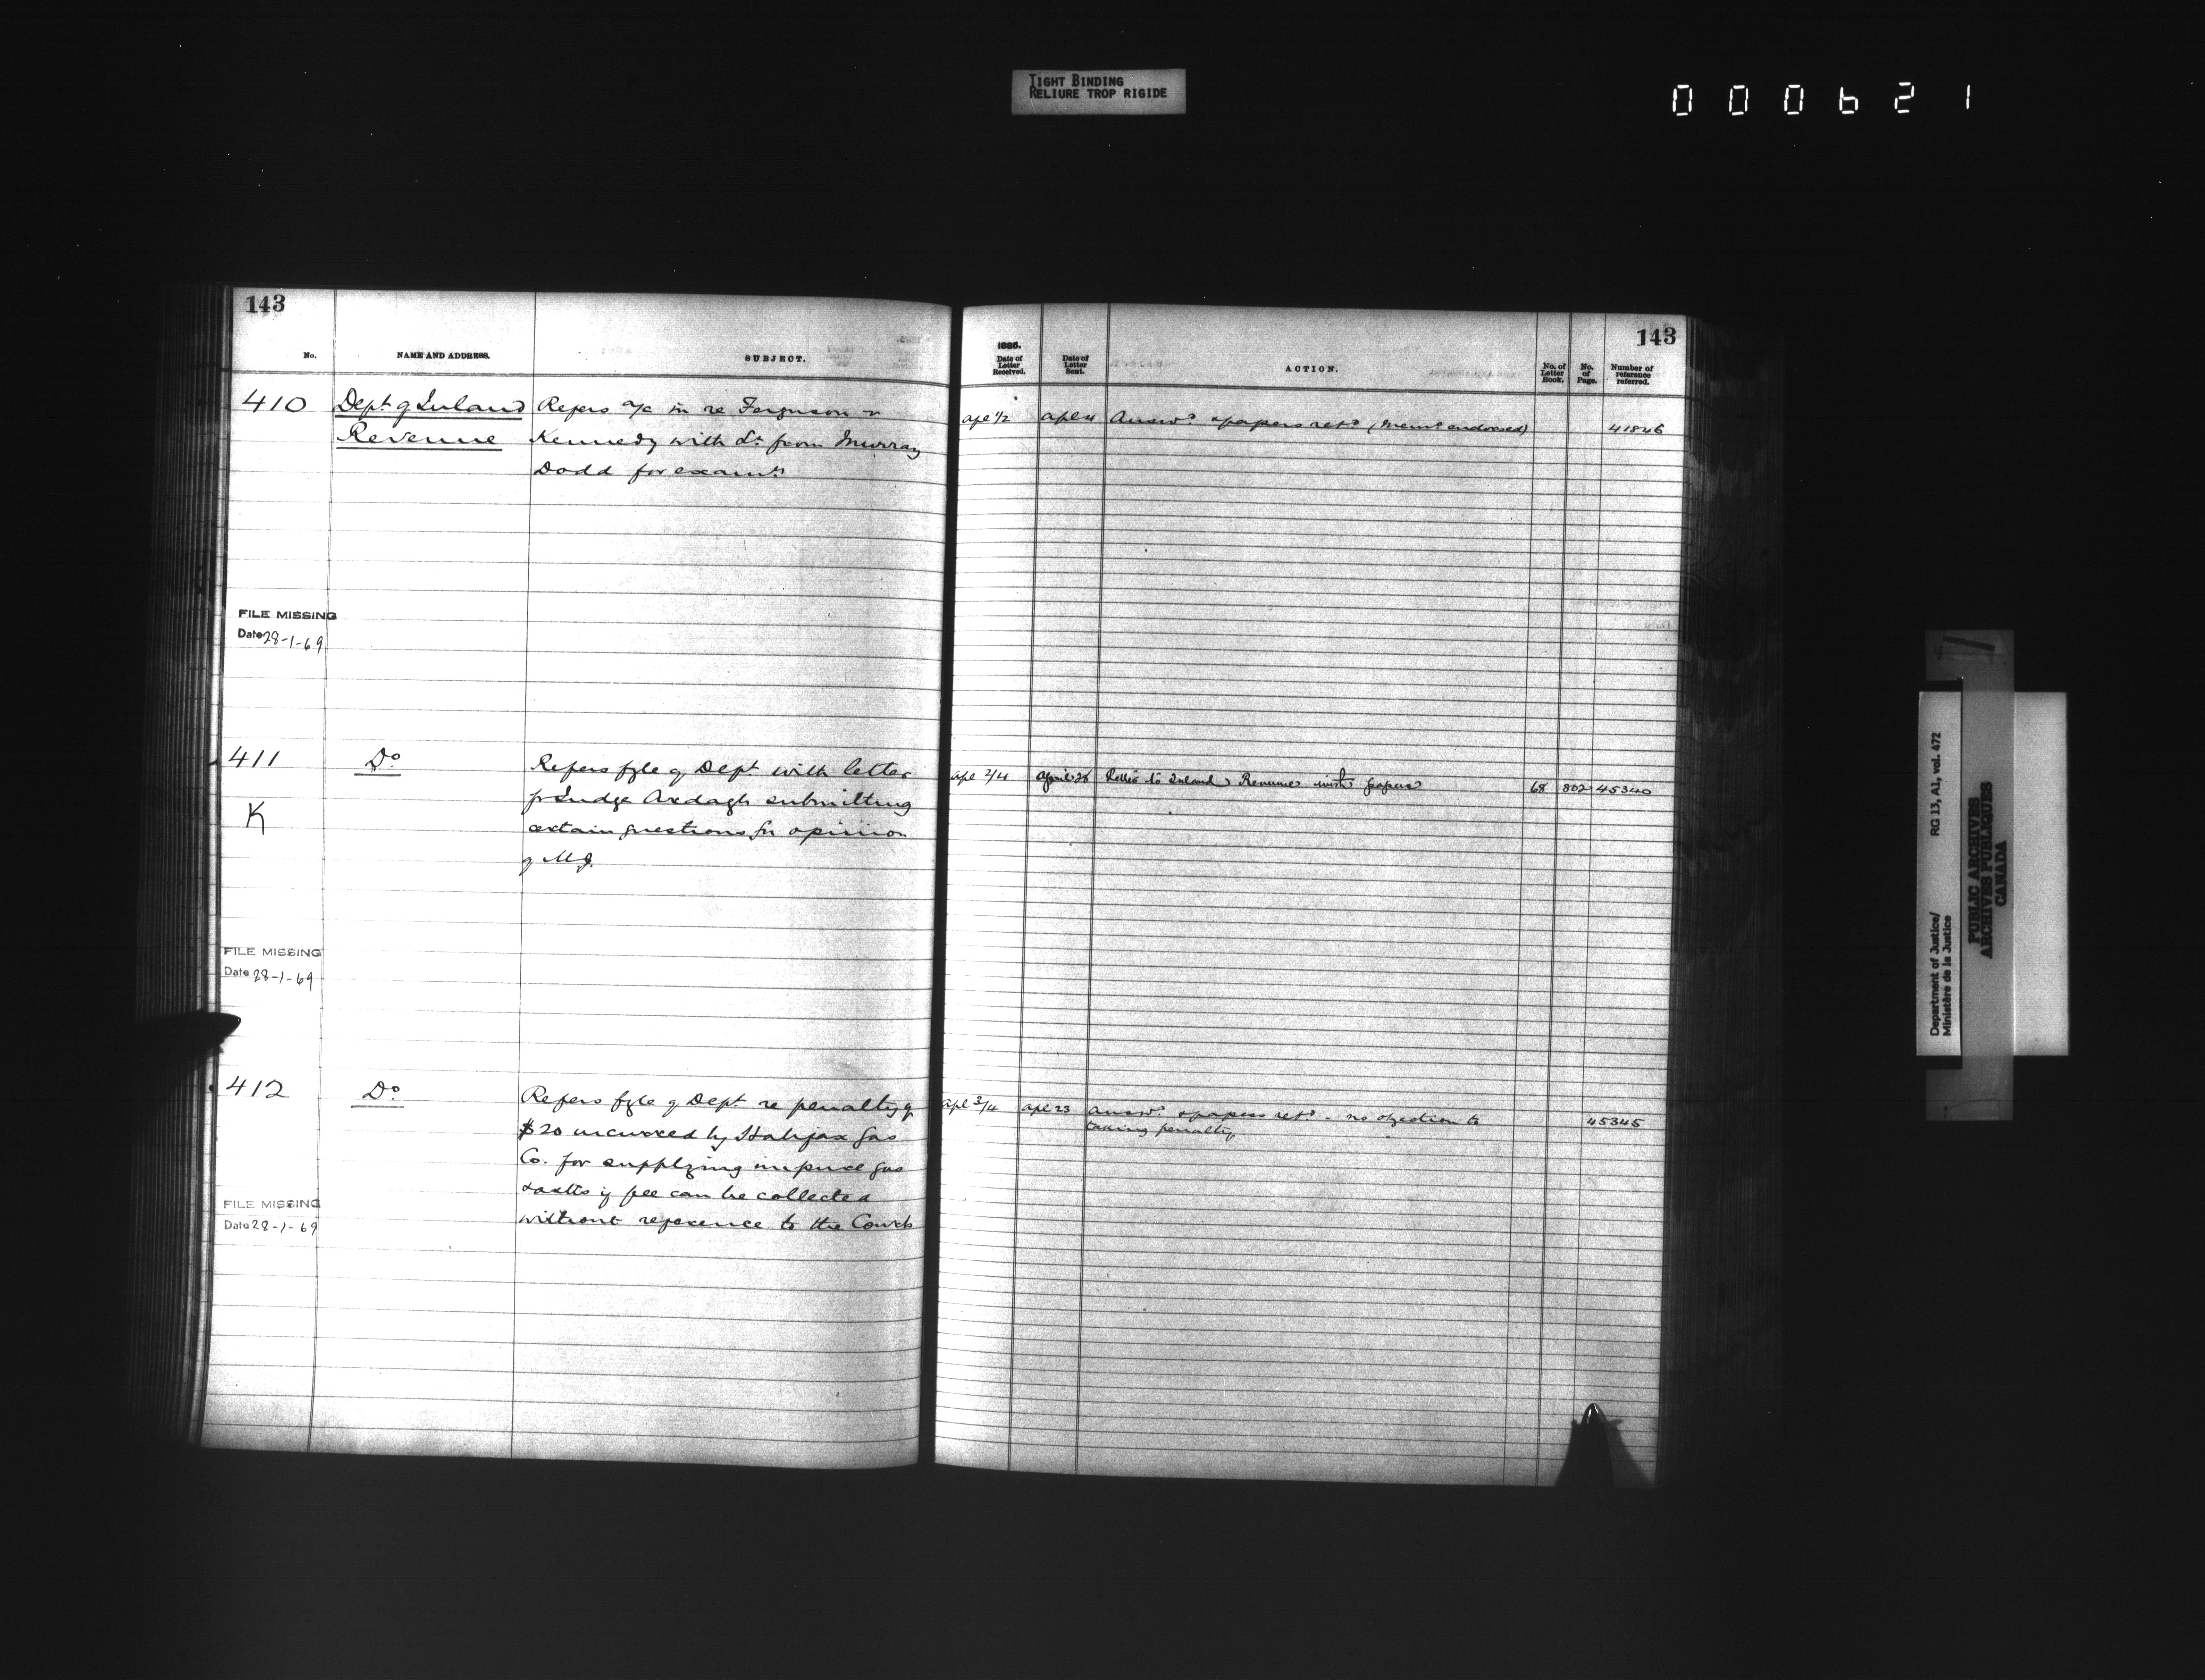 TIGHT BINDING
RELIURE TROP RIGIDE
000621
143
No.
NAME AND ADDRESS.
SUBJECT.
410
Dept. of Inland
Revenue
Refers a/c in re Ferguson v
Kennedy with Lr. from Murray
Dodd for examn.
FILE MISSING
Date 28-1-69
411
K
Do
Refers fyle of Dept with letter
fr Judge Ardagh submitting
certain questions for opinion
of M.J.
FILE MISSING
Date 28-1-69
412
Do
Refers fyle of Dept. re penalty of
$20 incurred by Halifax Gas
Co. for supplying impure gas
& asks if fee can be collected
without reference to the Courts
FILE MISSING
Date 28-1-69
143
1885.
Date of
Letter
Received.
Date of
Letter
Sent.
ACTION.
No. of
Letter
Book.
No.
of
Page.
Number of
reference
referred.
apl 1/2
apl 4
Answd. & papers retd (Memo endorsed)
41846
apl 2/4
April 28
Letter to Inland Revenue with papers
68
802
45340
apl 3/4
apl 23
Answd. & papers retd - no objection to
taking penalty
45345
Department of Justice/
Ministère de la Justice
RG 13, A1, vol. 472
PUBLIC ARCHIVES
ARCHIVES PUBLIQUES
CANADA